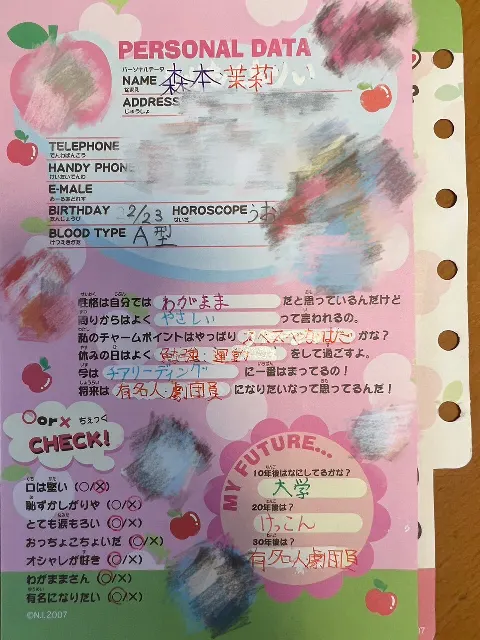 PERSONAL DATA
パーソナルデータ
NAME 森本 茉莉
なまえ
ADDRESS
じゅうしょ
TELEPHONE
でんわばんごう
HANDY PHONE
けいたいでんわ
E-MALE
めーるあどれす
BIRTHDAY 2/23 HOROSCOPE うお
たんじょうび せいざ
BLOOD TYPE A型
けつえきがた
性格は自分では わがまま だと思っているんだけど
周りからはよく やさしい って言われるの。
私のチャームポイントはやっぱり かな?
休みの日はよく 運動 をして過ごすよ。
今は チアリーディング に一番はまってるの!
将来は 有名人・劇団員 になりたいなって思ってるんだ!
○or× ちぇっく
CHECK!
口は堅い (○/×)
恥ずかしがりや (○/×)
とても涙もろい (○/×)
おっちょこちょいだ (○/×)
オシャレが好き (○/×)
わがままさん (○/×)
有名になりたい (○/×)
MY FUTURE...
10年後はなにしてるかな?
大学
20年後は?
けっこん
30年後は?
有名人劇団員
©N.I.2007